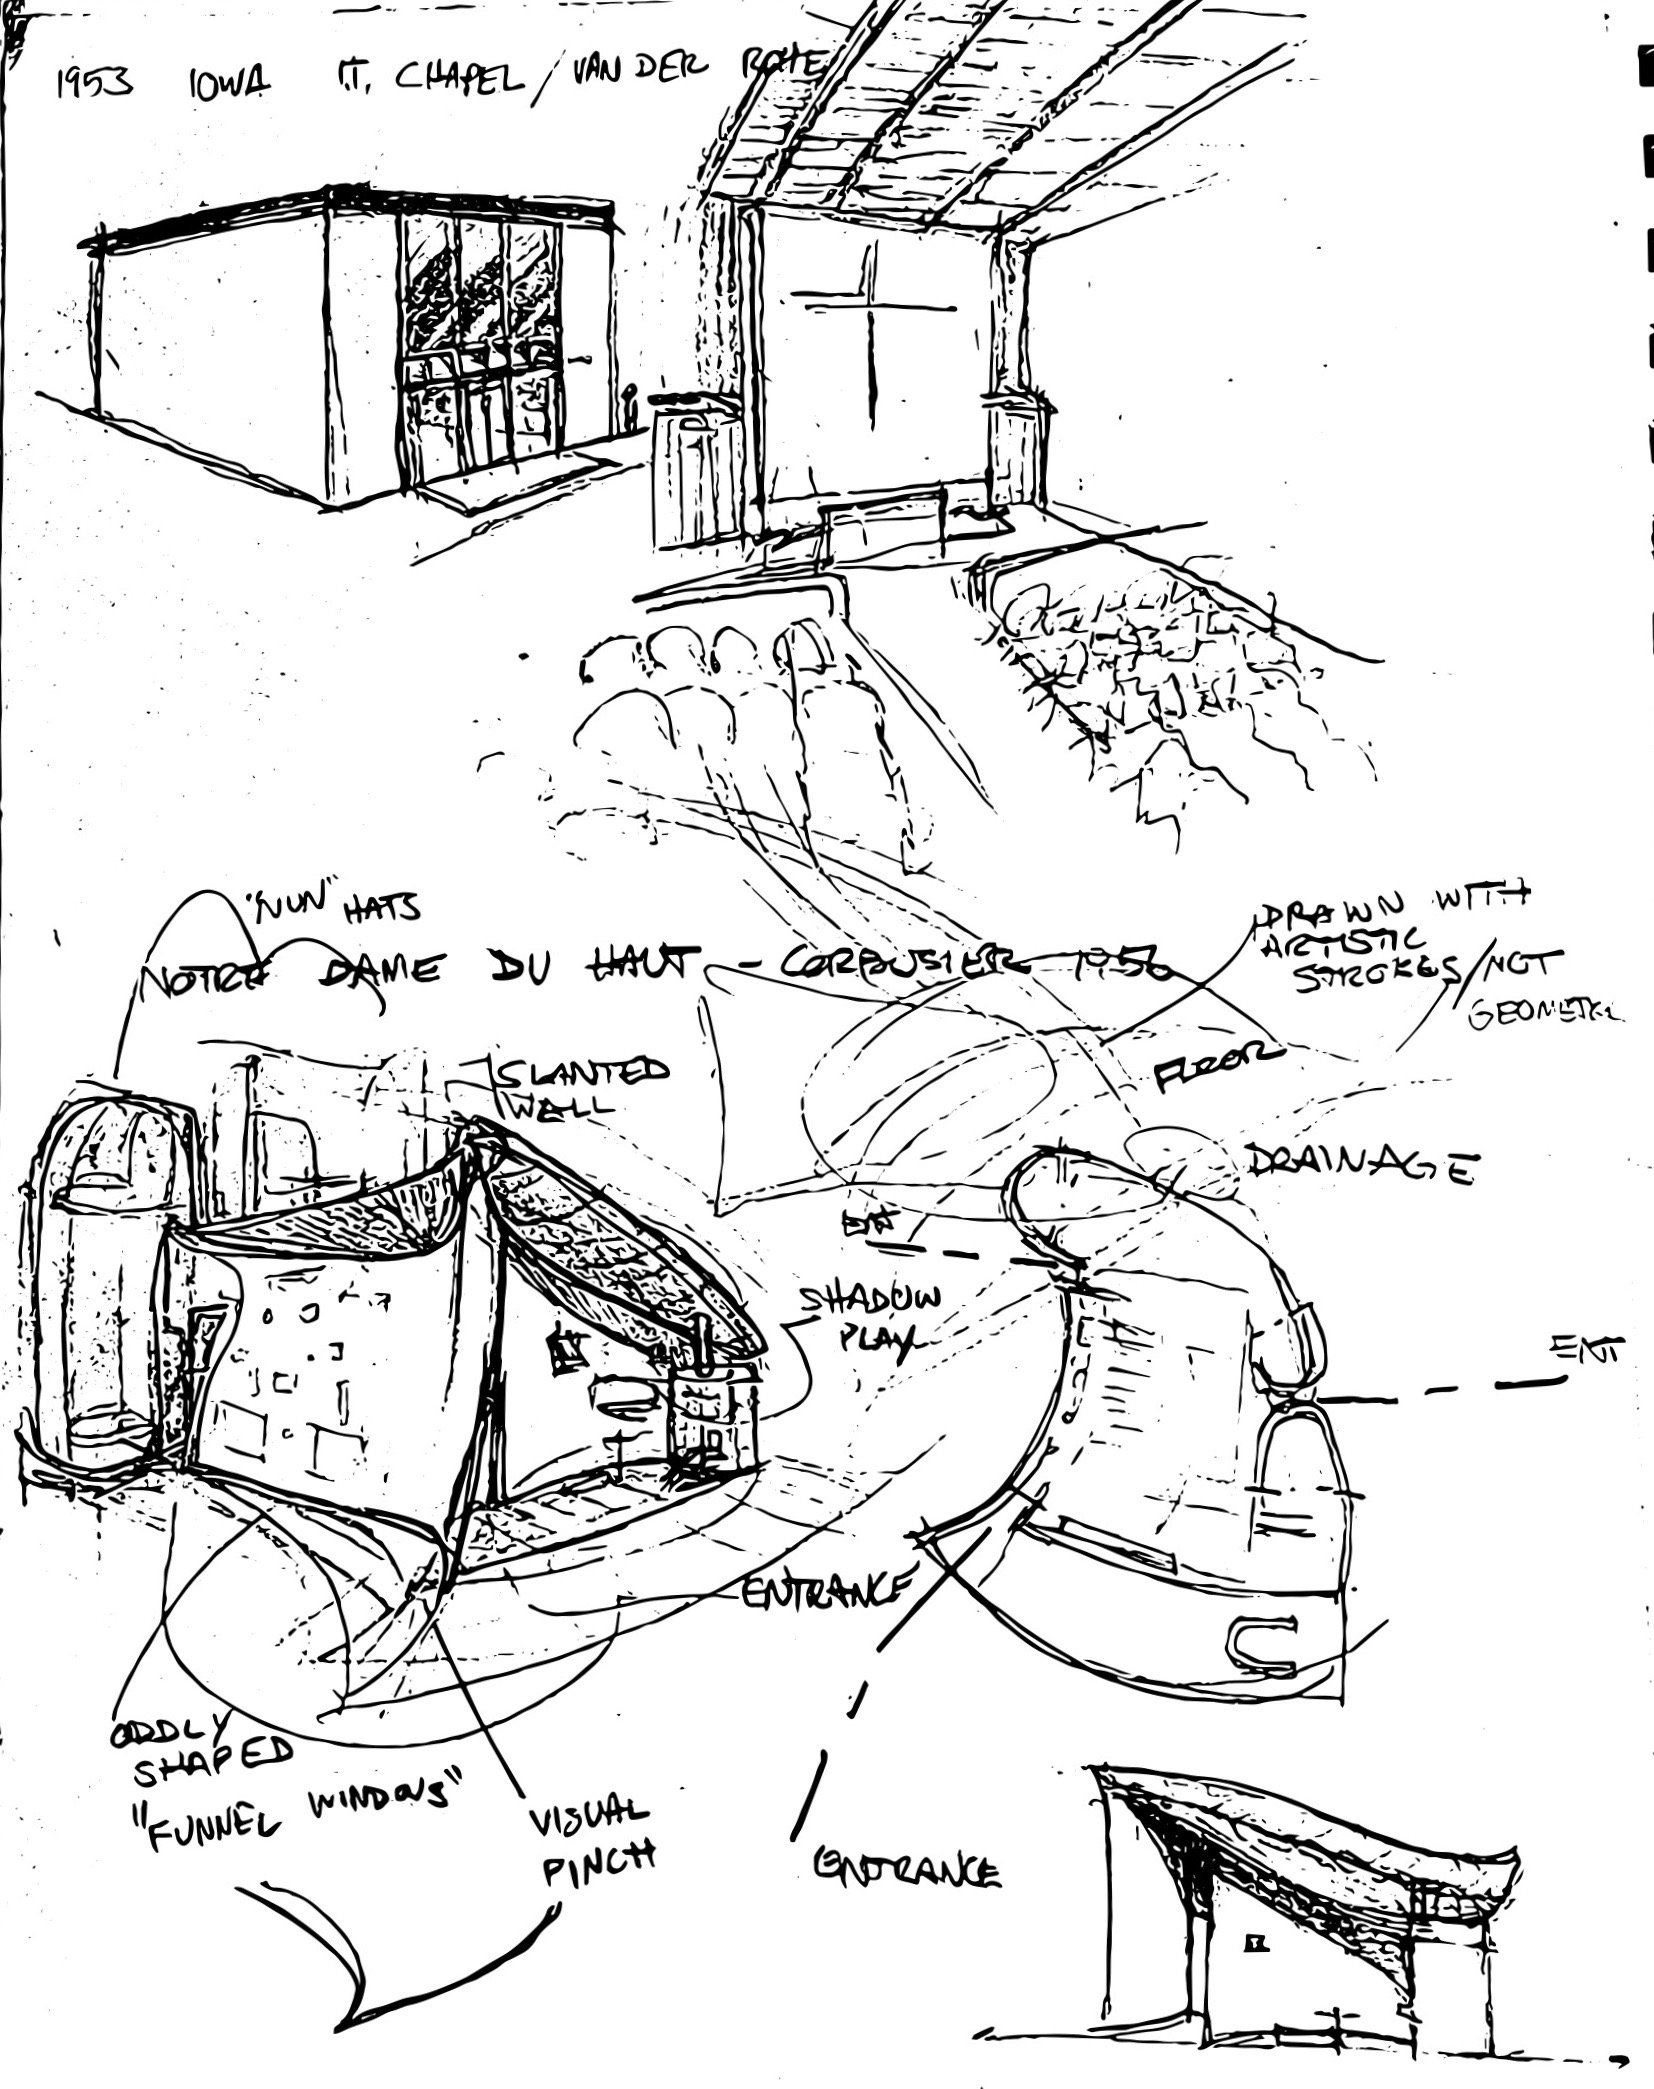 1953 IOWA I.T. CHAPEL / VAN DER ROHE
"NUN" HATS
NOTRE DAME DU HAUT - CORBUSIER 1956
DRAWN WITH
ARTISTIC
STROKES / NOT
GEOMETRIC
SLANTED
WALL
FLOOR
DRAINAGE
ENT
SHADOW
PLAY
ENT
ENTRANCE
ODDLY
SHAPED
"FUNNEL WINDOWS"
VISUAL
PINCH
ENTRANCE